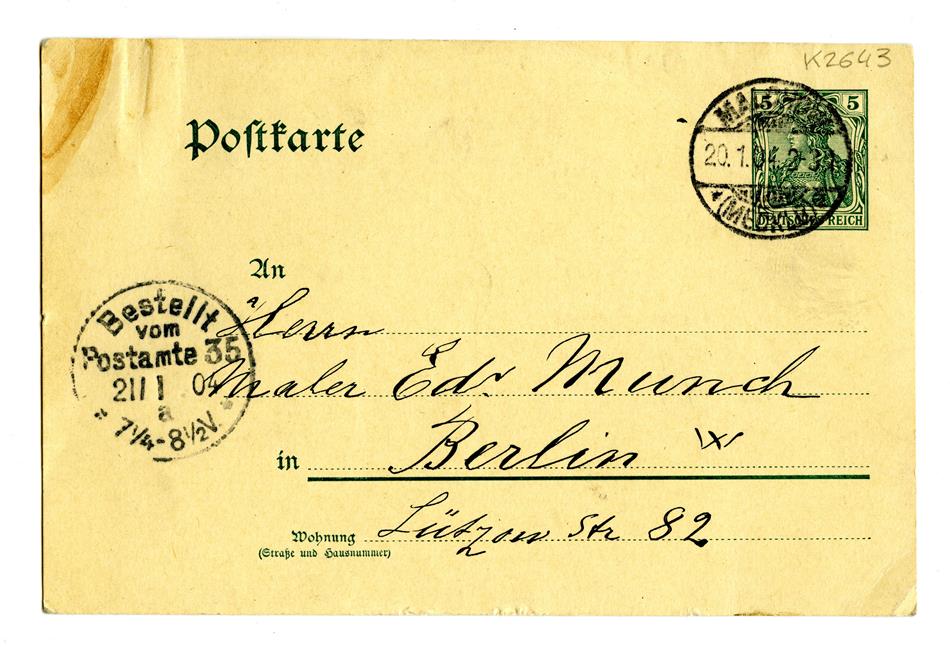 K2643
Postkarte
5 5
20.1.04.2-3N
(MECKLB)
DEUTSCHES REICH
An
Herrn
Bestellt
vom
Postamte 35
21/1 04
a
7¼-8½V.
Maler Edv Munch
in Berlin W
Wohnung Lützow Str 82
(Straße und Hausnummer)